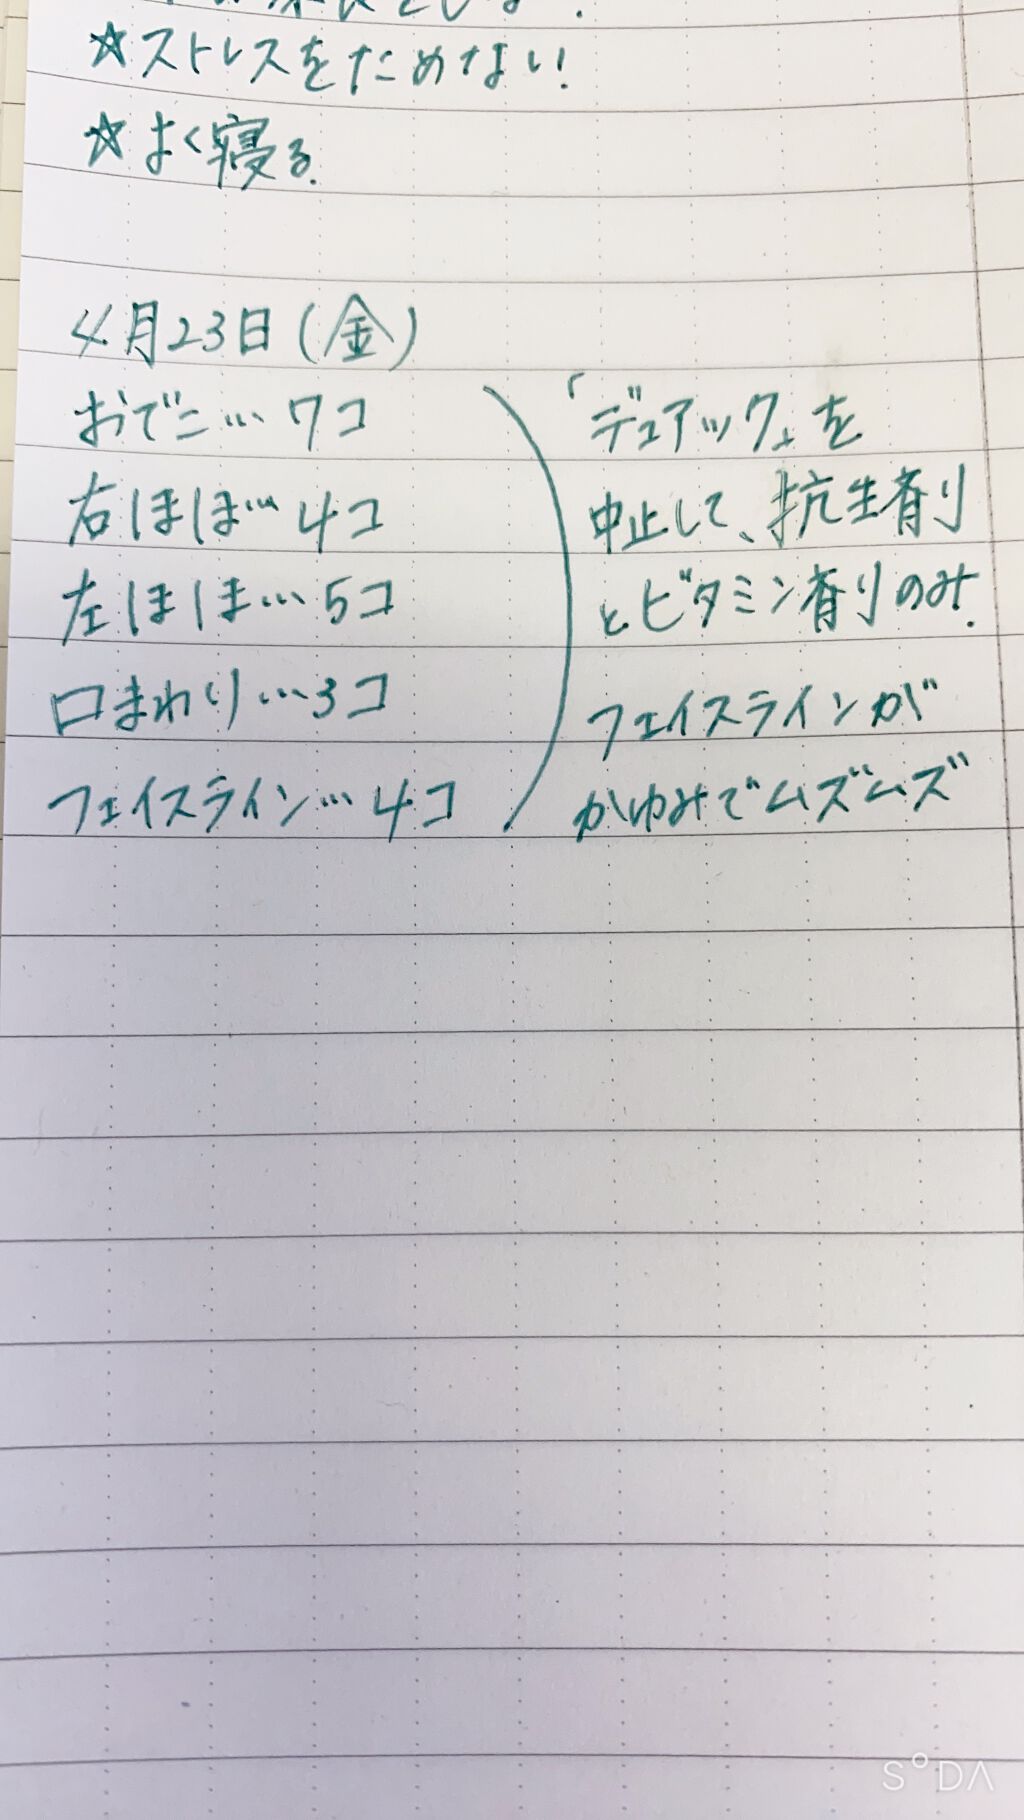 ☆ストレスをためない!
☆よく寝る.
4月23日(金)
おでこ…7コ
右ほほ…4コ
左ほほ…5コ
口まわり…3コ
フェイスライン…4コ
「デュアック」を
中止して、抗生剤
とビタミン剤のみ.
フェイスラインが
かゆみでムズムズ
SODA